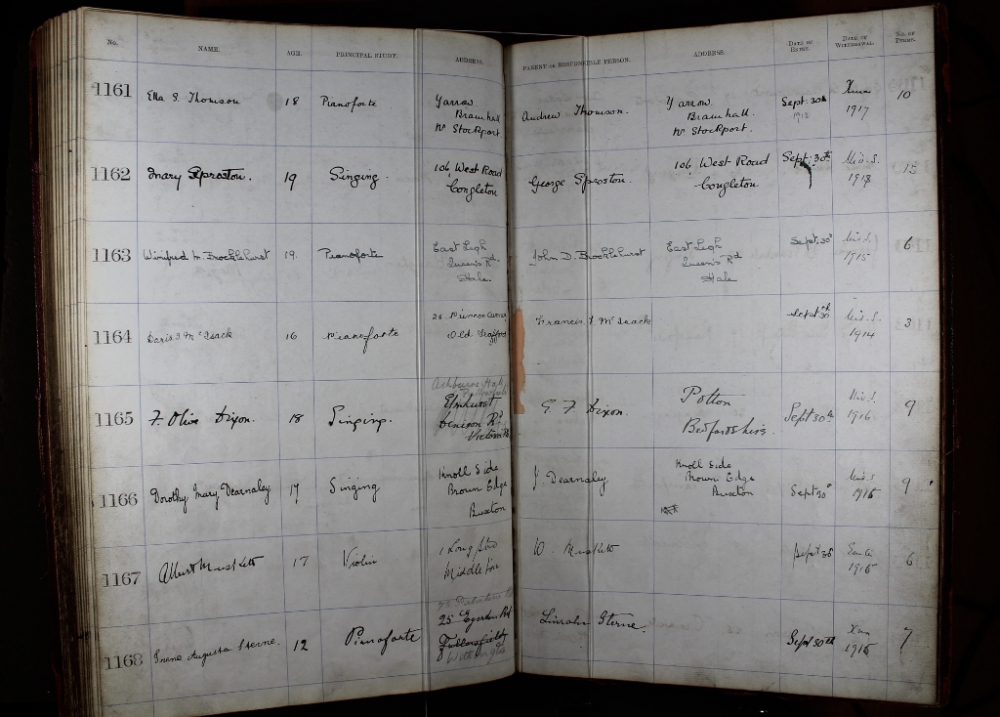 No. NAME. AGE. PRINCIPAL STUDY. ADDRESS. PARENT OR RESPONSIBLE PERSON. ADDRESS. DATE OF ENTRY. DATE OF WITHDRAWAL. No. OF TERMS.
1161 Ella S. Thomson 18 Pianoforte Yarrow Andrew Thomson. Yarrow Sept. 30th Xmas 10
Bramhall Bramhall 1912 1917
Nr Stockport. Nr Stockport.
1162 Mary Sproston. 19 Singing. 106, West Road George Sproston. 106, West Road Sept. 30th Mids. S. 15
Congleton Congleton 1918
1163 Winifred M Brocklehurst 19. Pianoforte East Leigh John D. Brocklehurst East Leigh Sept. 30th Mids. S. 6
Queen's Rd Queen's Rd 1915
Hale. Hale
1164 Doris J. McIsack 16 Pianoforte Francis J. McIsack Sept 30th Mids. S. 3
Old Trafford 1914
1165 F. Olive Dixon. 18 Singing. Ashbourne Hall G F Dixon. Potton Sept 30th Mids. S. 9
Elmhurst Bedfordshire. 1916.
Denison Rd
Victoria Pk
1166 Dorothy Mary Dearnaley 17 Singing Knoll Side J. Dearnaley Knoll Side Sept 30th Mids. S 9
Brown Edge Brown Edge 1916
Buxton Buxton
1167 Albert Muskett 17 Violin 1 Long St W. Muskett Sept 30 6
Middleton 1915
1168 Irene Augusta Sterne. 12 Pianoforte 25 Egerton Rd Lincoln Sterne. Sept 30th Xmas 7
Fallowfield 1915
Withington